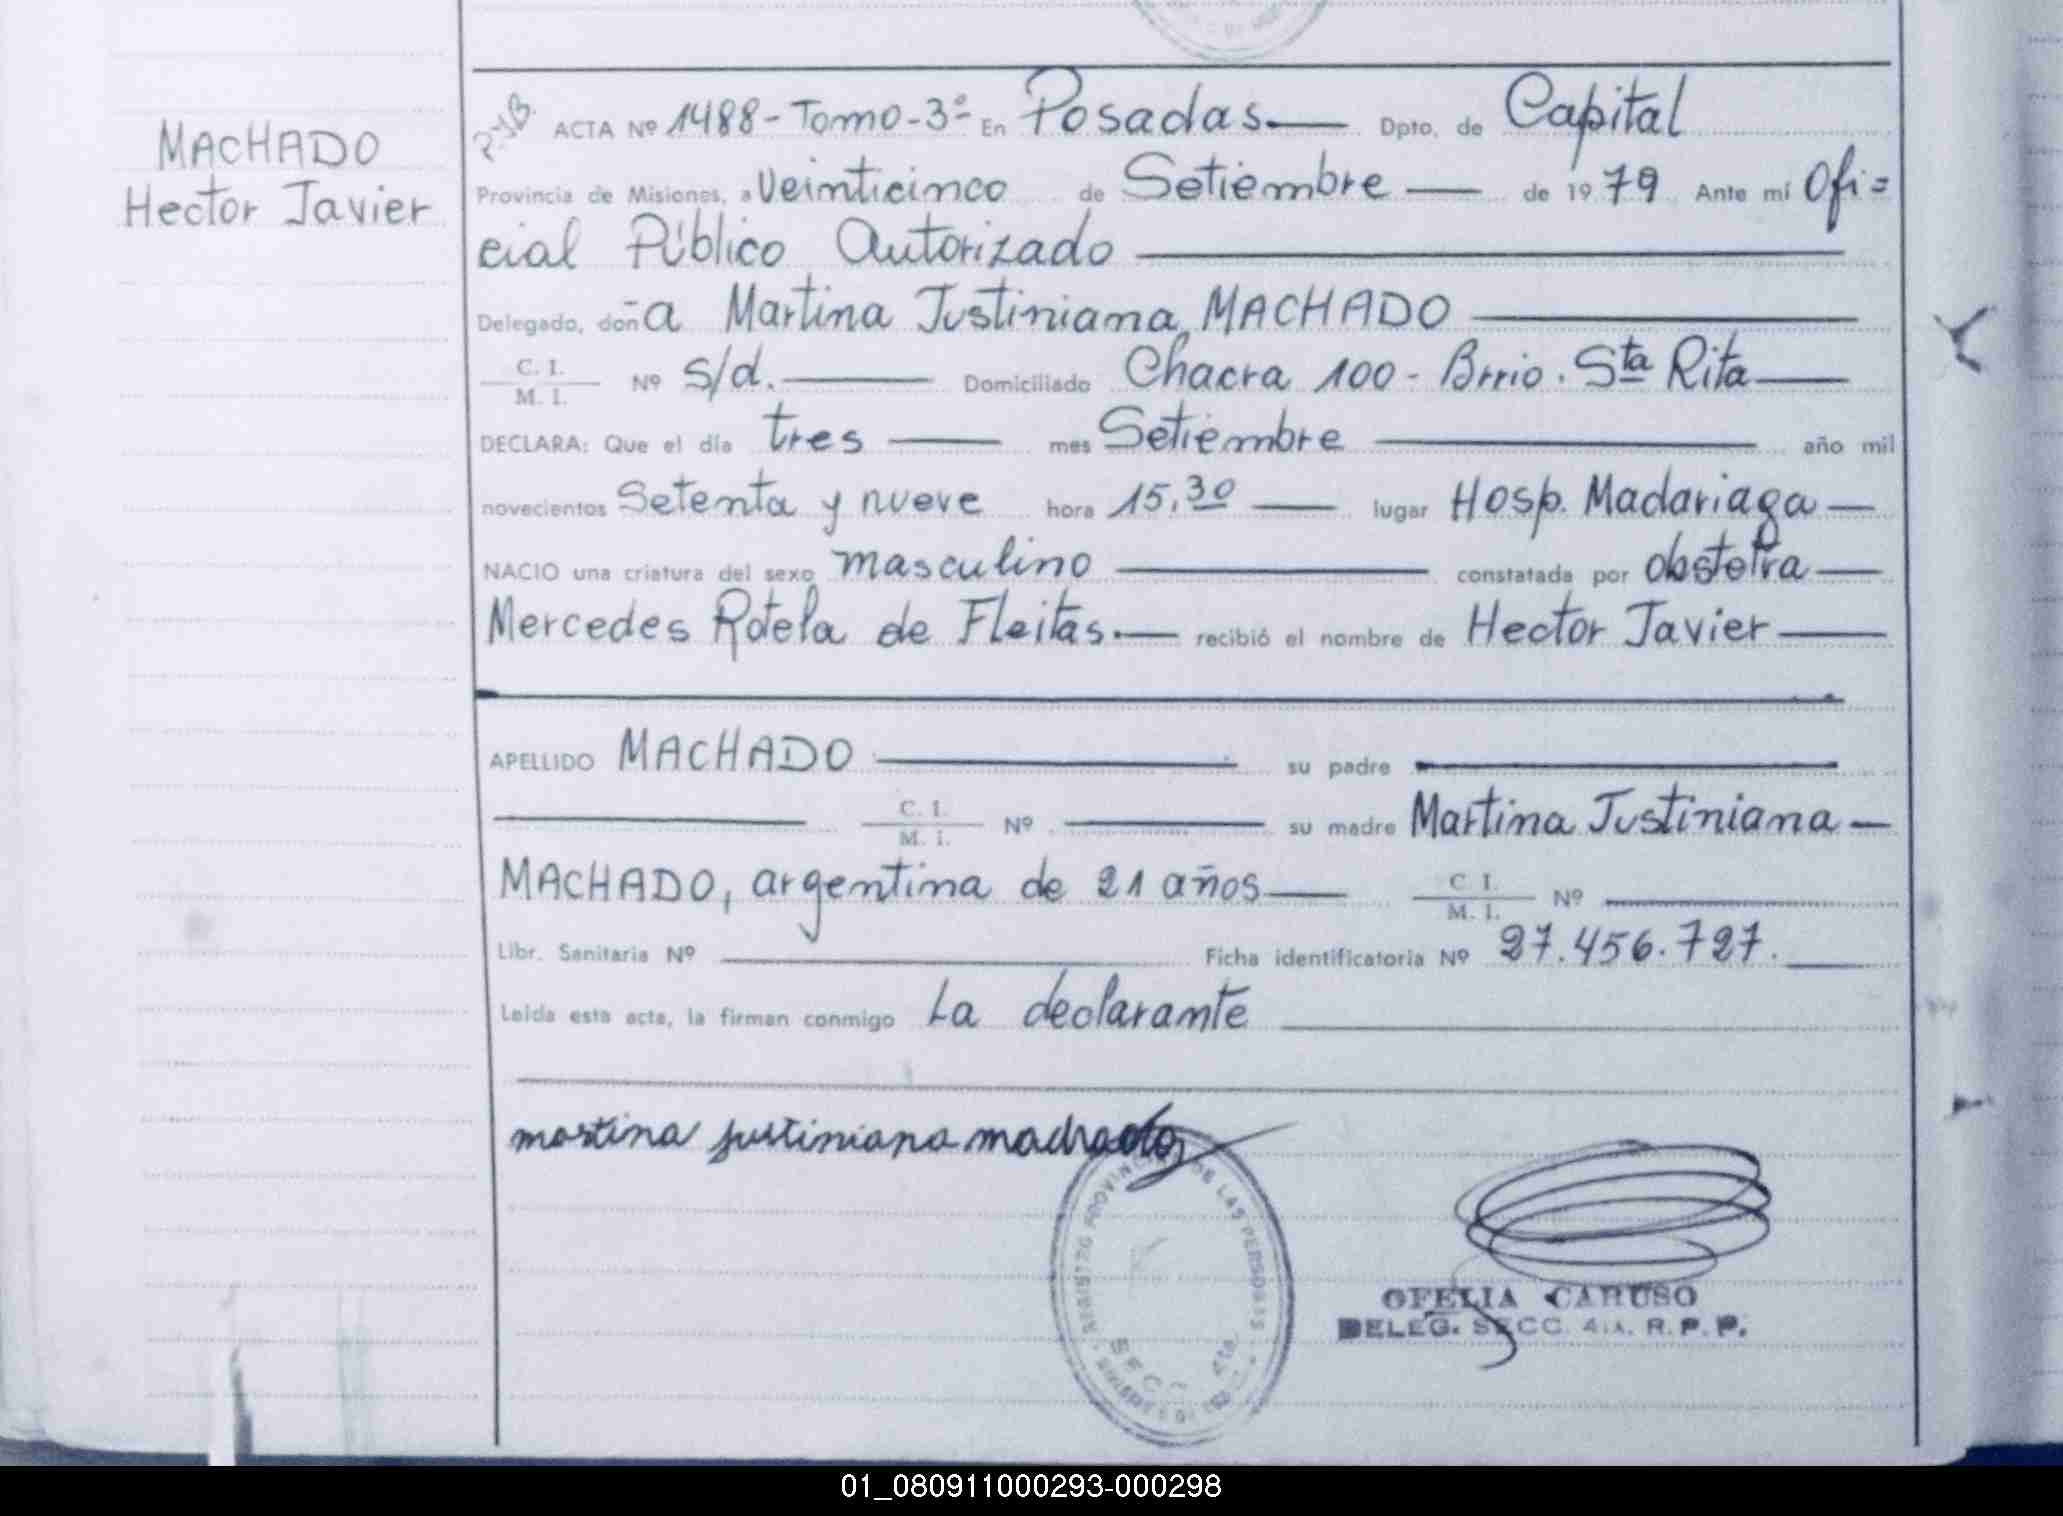 MACHADO
Hector Javier
ACTA Nº 1488-Tomo-3º En Posadas Dpto. de Capital
Provincia de Misiones, a Veinticinco de Setiembre de 1979 Ante mí Ofi=
cial Público Autorizado
Delegado, doña Martina Justiniana MACHADO
C. I.
M. I.
Nº s/d. Domiciliado Chacra 100 - Brrio. Sta Rita
DECLARA: Que el día tres mes Setiembre año mil
novecientos Setenta y nueve hora 15,30 lugar Hosp. Madariaga
NACIO una criatura del sexo masculino constatada por obstetra
Mercedes Rotela de Fleitas. recibió el nombre de Hector Javier
APELLIDO MACHADO su padre
C. I.
M. I.
Nº su madre Martina Justiniana
MACHADO, argentina de 21 años C. I.
M. I.
Nº
Libr. Sanitaria Nº Ficha identificatoria Nº 27.456.727.
Leída esta acta, la firman conmigo La declarante
martina justiniana machado
REGISTRO PROVINCIAL DE LAS PERSONAS
SECC 4ta
OFELIA CARUSO
DELEG. SECC. 4ta. R. P. P.
01_080911000293-000298